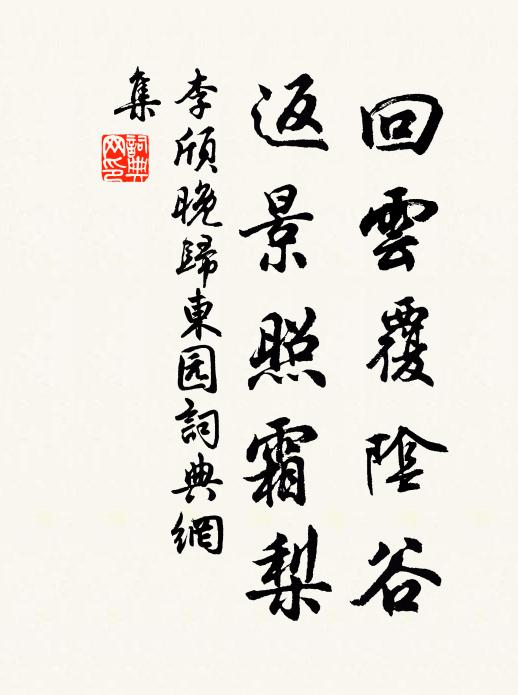 回雲覆陰谷
返景照霜梨
李頎晚歸東园詞典網
集
詞典
网印